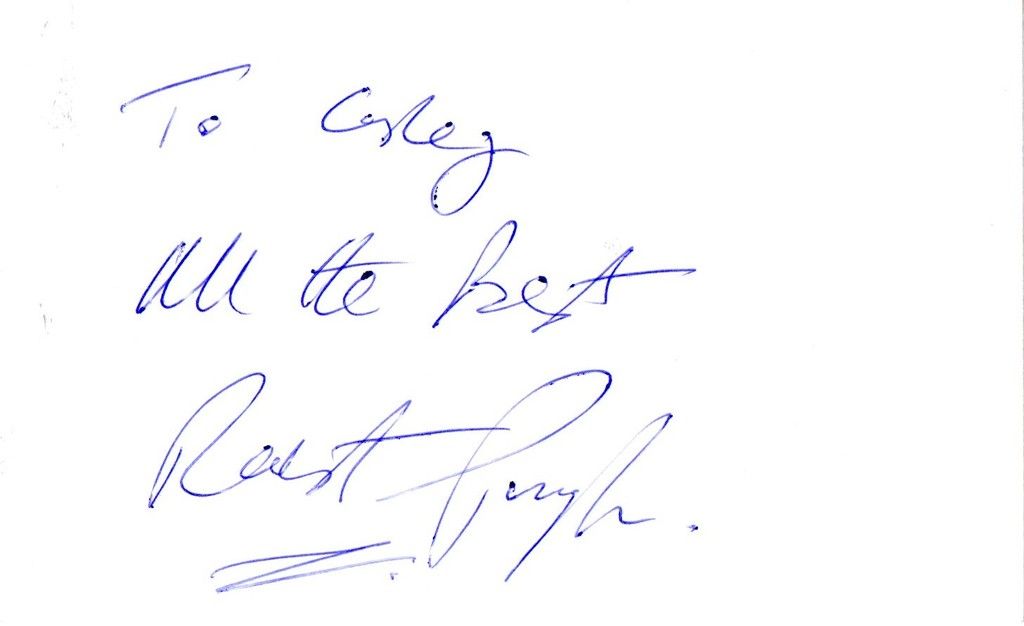 To Casley
All the best
Robert Pugh.